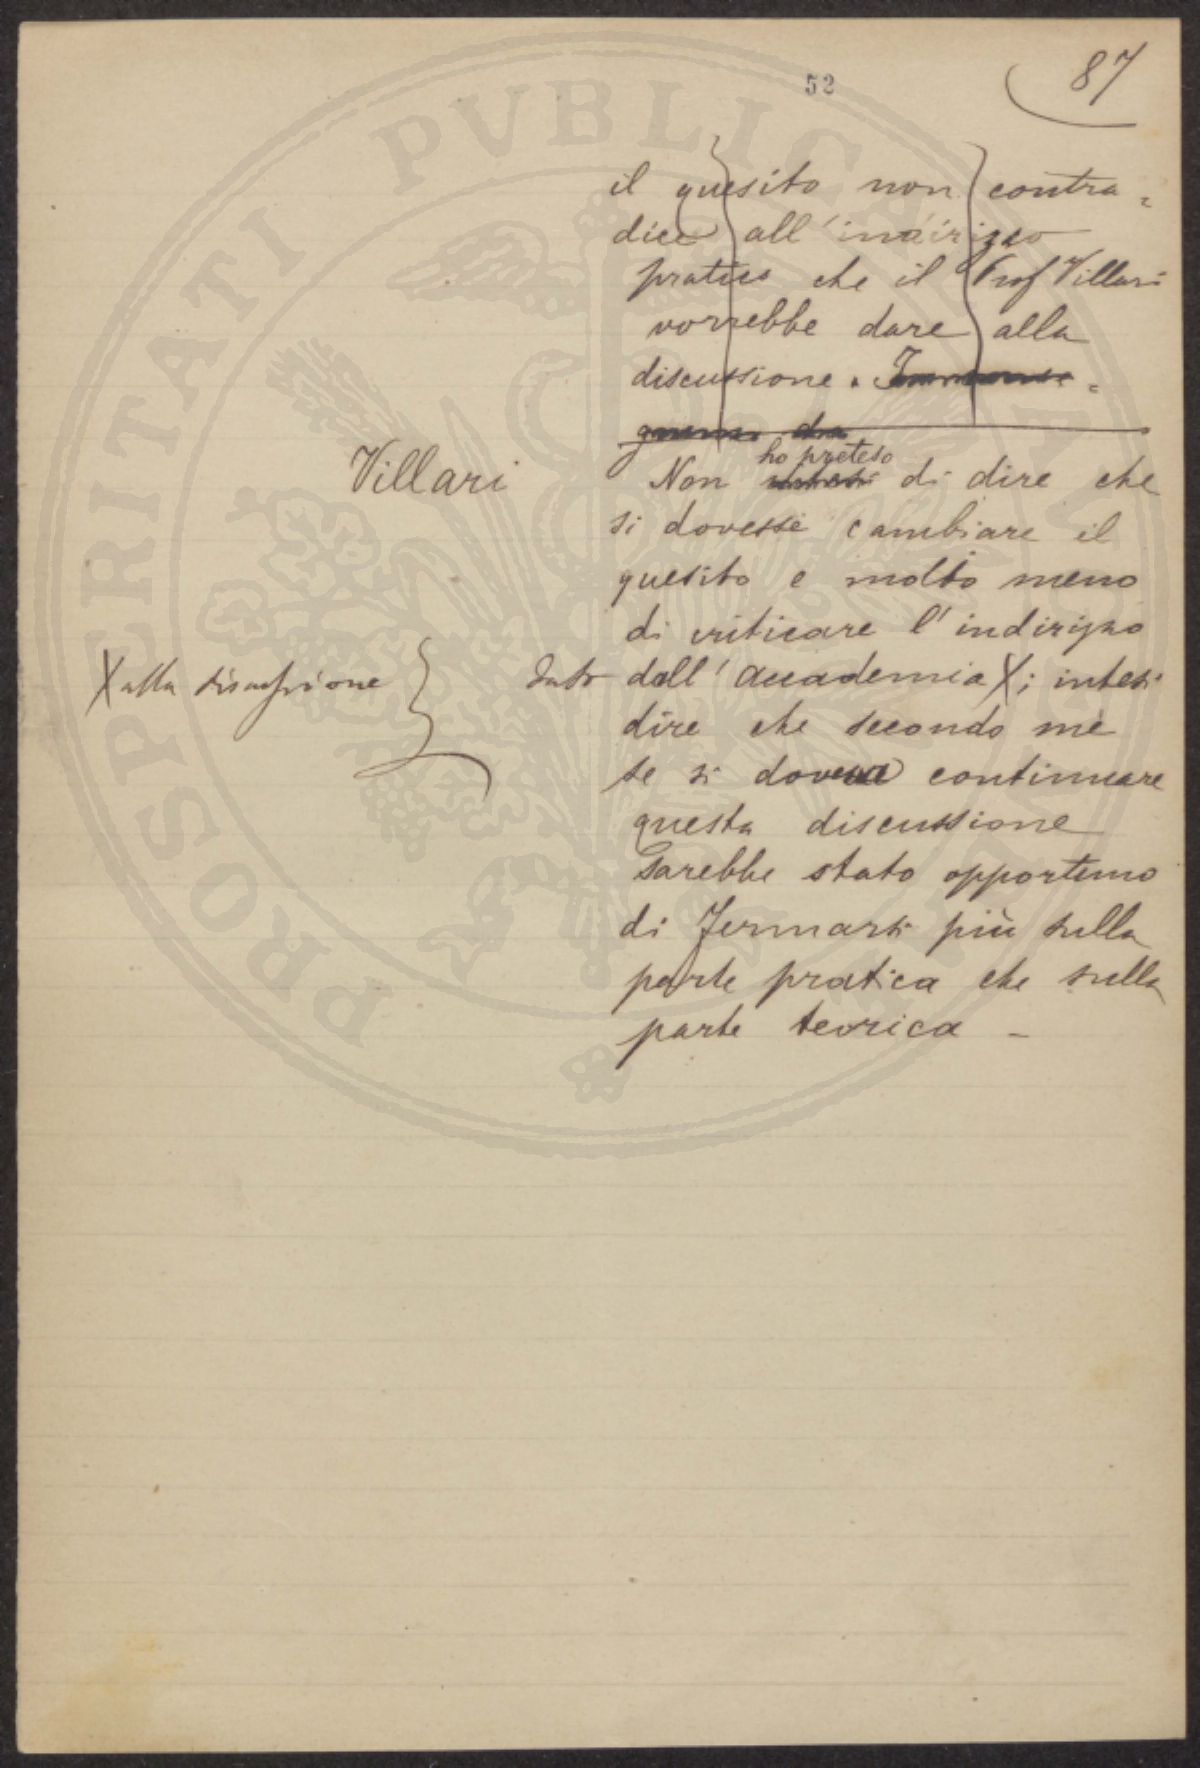 87
52
il quesito non contra=
dice all'indirizzo
pratico che il Prof Villari
vorrebbe dare alla
discussione.
ho preteso
Villari Non intesi di dire che
si dovesse cambiare il
quesito e molto meno
di criticare l'indirizzo
X alla discussione dato dall'Accademia X; intesi
dire che secondo me
se si doveva continuare
questa discussione
sarebbe stato opportuno
di fermarsi più sulla
parte pratica che sulla
parte teorica –
PROSPERITATI PVBLICAE